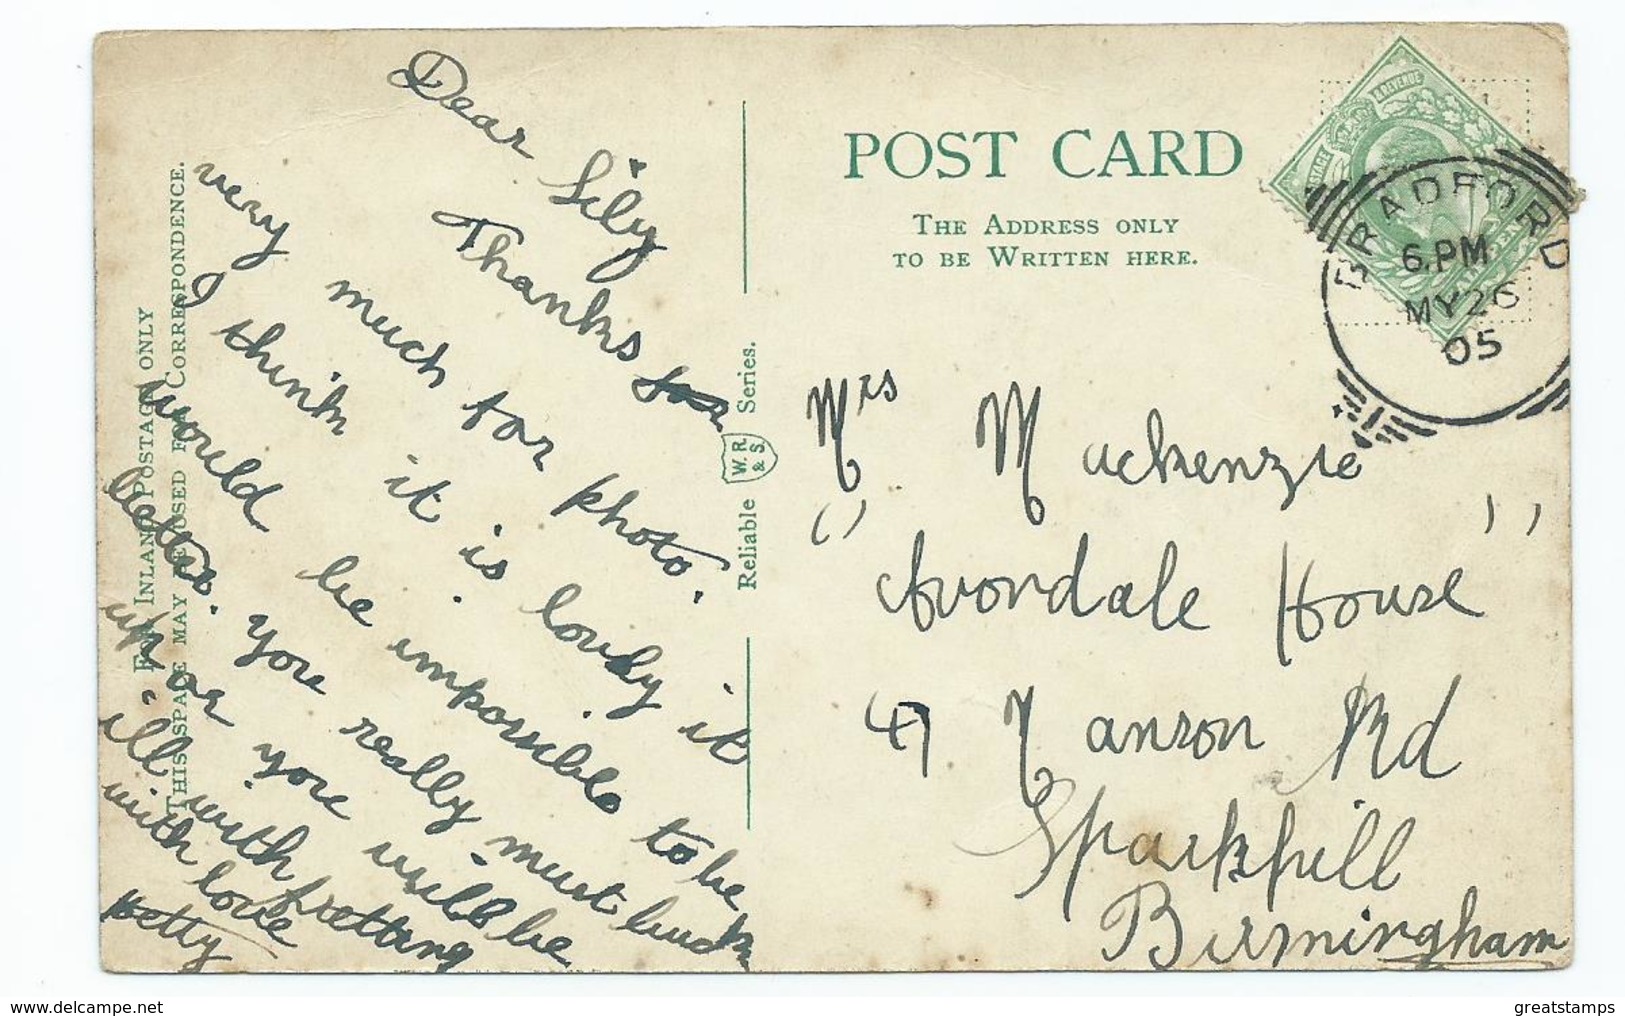 Dear Lily
Thanks for
very much for photo.
I think it is lovely it
would be impossible to be
better. You really must buck
up or you will be
ill with fretting
with love
Betty
FOR INLAND POSTAGE ONLY
THIS SPACE MAY BE USED FOR CORRESPONDENCE.
Reliable W.R. & S. Series.
POST CARD
THE ADDRESS ONLY
TO BE WRITTEN HERE.
POSTAGE & REVENUE
BRADFORD
6.PM
MY 26
05
Mrs Mackenzie
"Avondale House"
47 Ranson Rd
Sparkhill
Birmingham
greatstamps